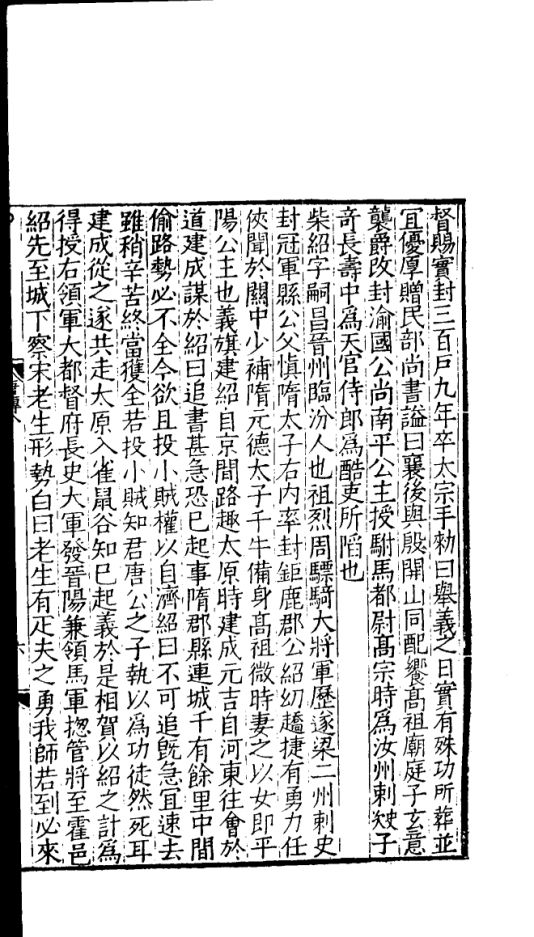 督賜實封三百戶九年卒太宗手勑曰舉義之日實有殊功所葬並
冝優厚贈民部尚書謚曰襄後與殷開山同配饗髙祖廟庭子玄意
襲爵改封渝國公尚南平公主授駙馬都尉髙宗時爲汝州刺史子
竒長壽中爲天官侍郎爲酷吏所䧟也
柴紹字嗣昌晉州臨汾人也祖烈周驃騎大將軍歷遂梁二州刺史
封冠軍縣公父慎隋太子右内率封鉅鹿郡公紹幼趫捷有勇力任
俠聞於關中少補隋元德太子千牛備身髙祖微時妻之以女即平
陽公主也義旗建紹自京間路趣太原時建成元吉自河東往會於
道建成謀於紹曰追書甚急恐巳起事隋郡縣連城千有餘里中間
偷路勢必不全今欲且投小賊權以自濟紹曰不可追旣急冝速去
雖稍辛苦終當獲全若投小賊知君唐公之子執以爲功徒然死耳
建成從之遂共走太原入雀鼠谷知巳起義於是相賀以紹之計爲
得授右領軍大都督府長史大軍發晉陽兼領馬軍揔管將至霍邑
紹先至城下察宋老生形勢白曰老生有疋夫之勇我師若到必來